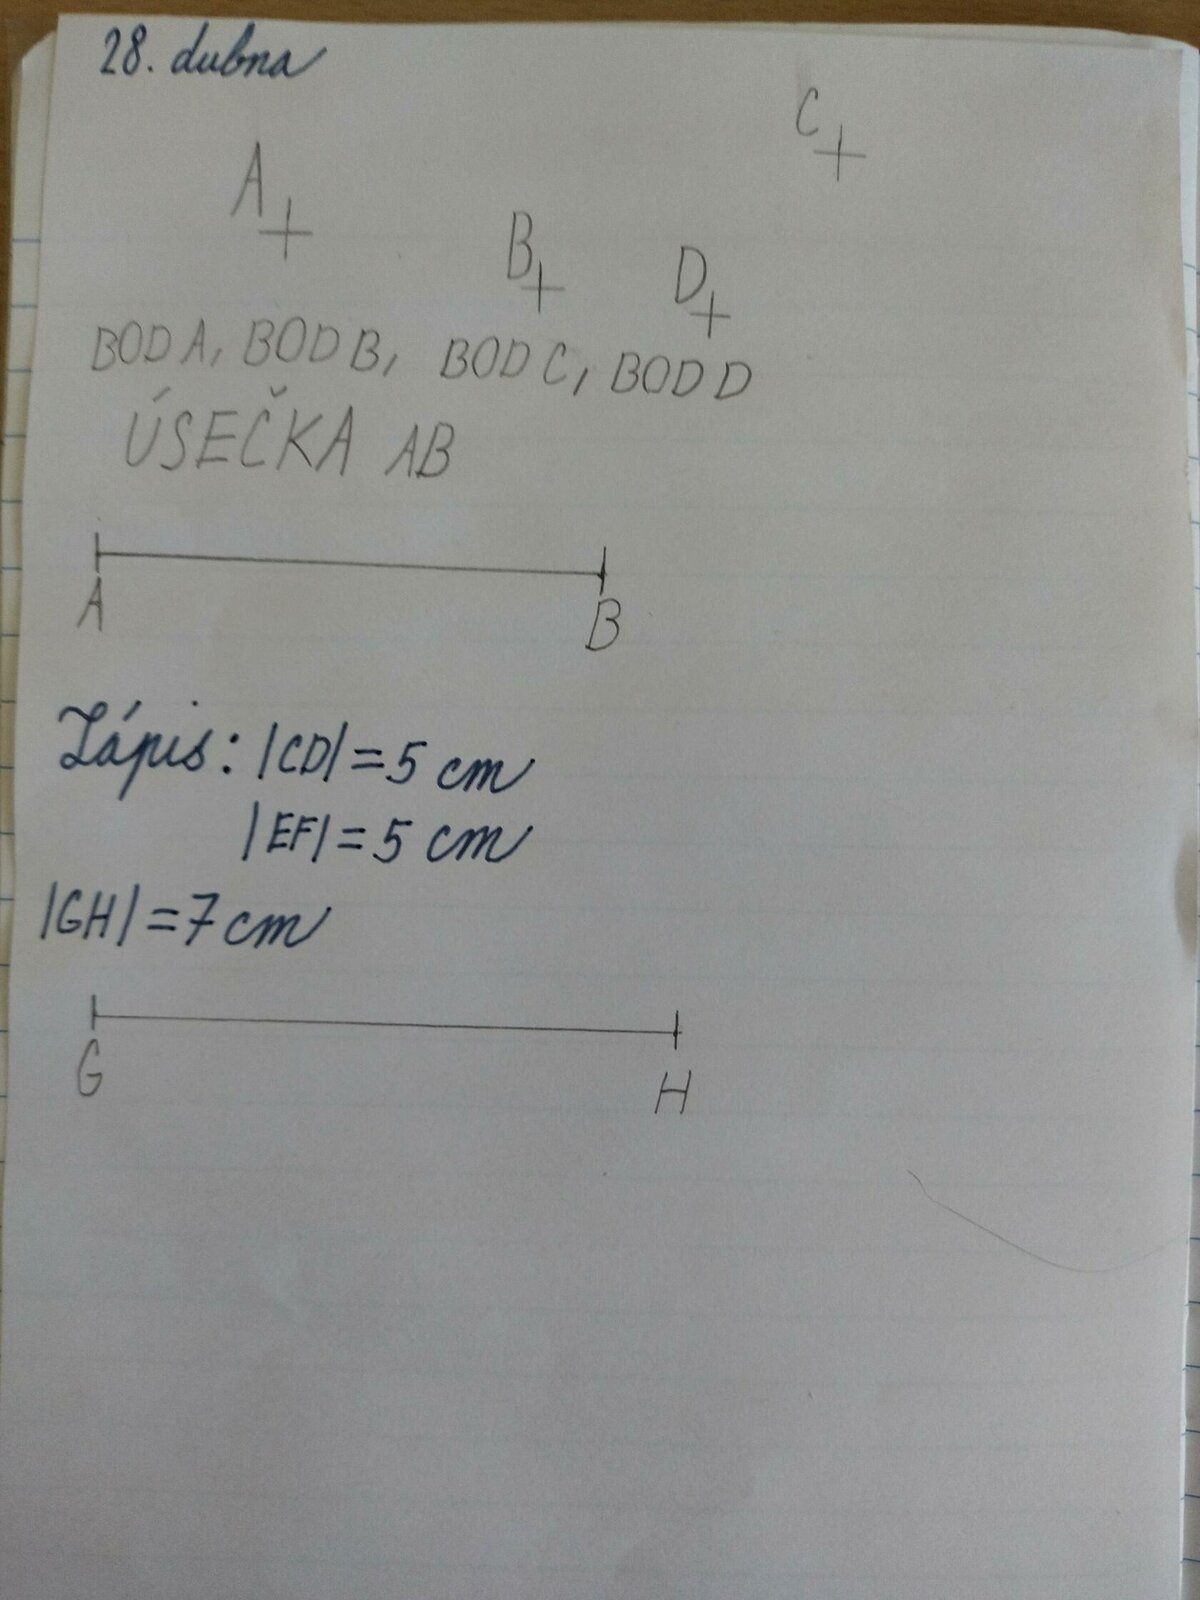 28. dubna
C
A
B
D
BOD A, BOD B, BOD C, BOD D
ÚSEČKA AB
A
B
Zápis: |CD| = 5 cm
|EF| = 5 cm
|GH| = 7 cm
G
H